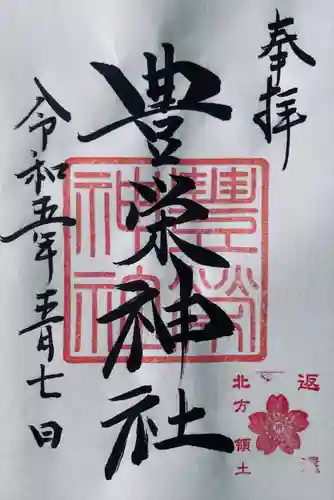 奉拝
豊栄神社
豐榮
神社
令和五年五月七日
返還
北方領土